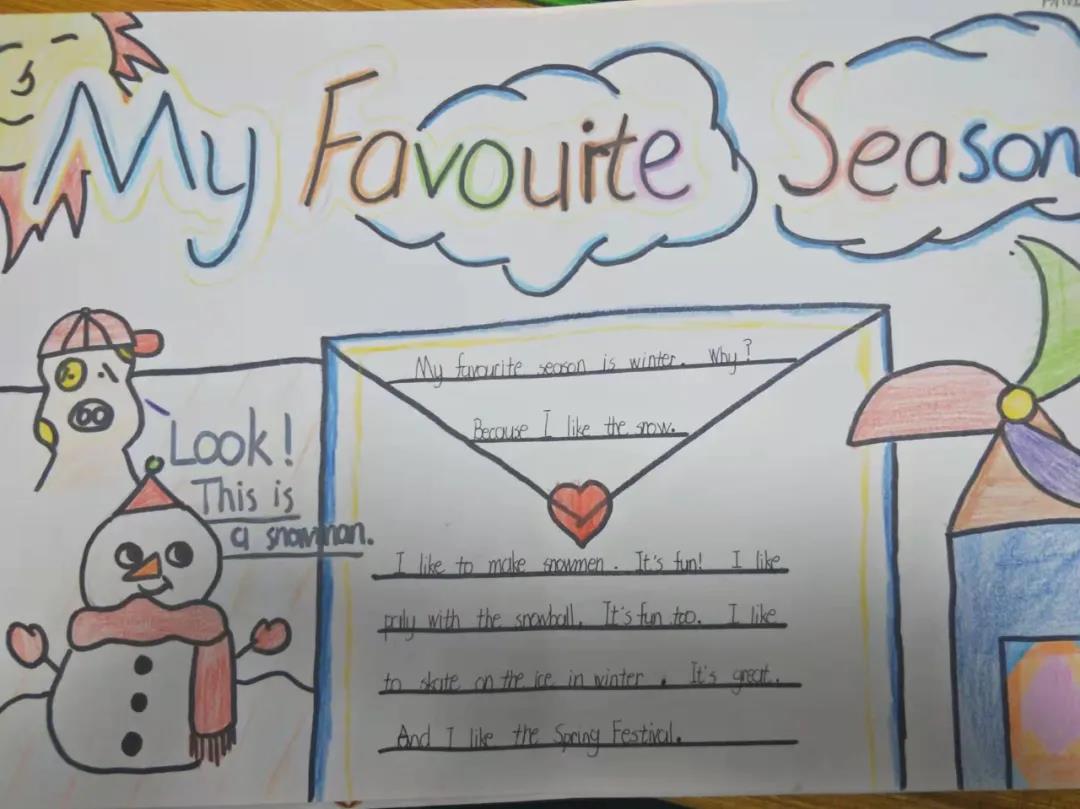 My Favourite Season
My favourite season is winter. Why?
Because I like the snow.
Look!
This is
a snowman.
I like to make snowmen. It's fun! I like
paly with the snowball. It's fun too. I like
to skate on the ice in winter. It's great.
And I like the Spring Festival.